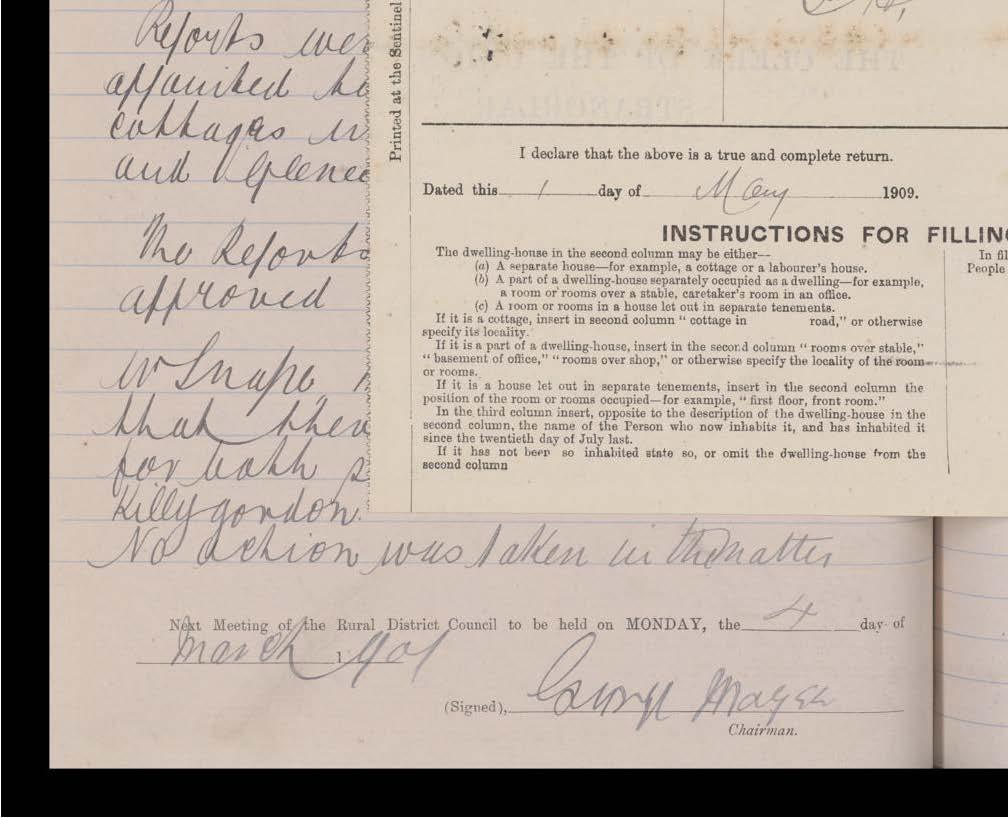 Reports wer
appointed to
cottages in
and Glenee
The Reports
approved
Mr Snape,
that ther
for both s
Killygordon.
No action was taken in the matter
Next Meeting of the Rural District Council to be held on MONDAY, the 4 day of
March 1901
(Signed), George Magee
Chairman.
Printed at the Sentinel
THE CLERK OF THE UNION
STRANORLAR
I declare that the above is a true and complete return.
Dated this 1 day of May 1909.
INSTRUCTIONS FOR FILLING
The dwelling-house in the second column may be either—
(a) A separate house—for example, a cottage or a labourer's house.
(b) A part of a dwelling-house separately occupied as a dwelling—for example,
a room or rooms over a stable, caretaker's room in an office.
(c) A room or rooms in a house let out in separate tenements.
If it is a cottage, insert in second column " cottage in road," or otherwise
specify its locality.
If it is a part of a dwelling-house, insert in the second column " rooms over stable,"
" basement of office," " rooms over shop," or otherwise specify the locality of the room
or rooms.
If it is a house let out in separate tenements, insert in the second column the
position of the room or rooms occupied—for example, " first floor, front room."
In the third column insert, opposite to the description of the dwelling-house in the
second column, the name of the Person who now inhabits it, and has inhabited it
since the twentieth day of July last.
If it has not been so inhabited state so, or omit the dwelling-house from the
second column
In fil
People